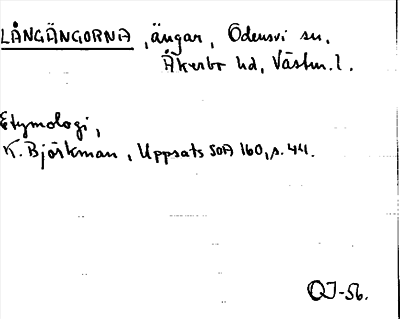 LÅNGÄNGORNA, ängar, Odensvi sn.
Åkerbo hd, Västm. l.
Etymologi,
K. Björkman, Uppsats SOA 160, s. 44.
OJ-56.